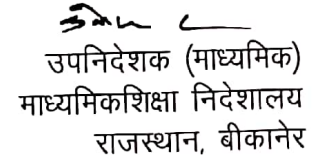 उपनिदेशक (माध्यमिक)
माध्यमिकशिक्षा निदेशालय
राजस्थान, बीकानेर